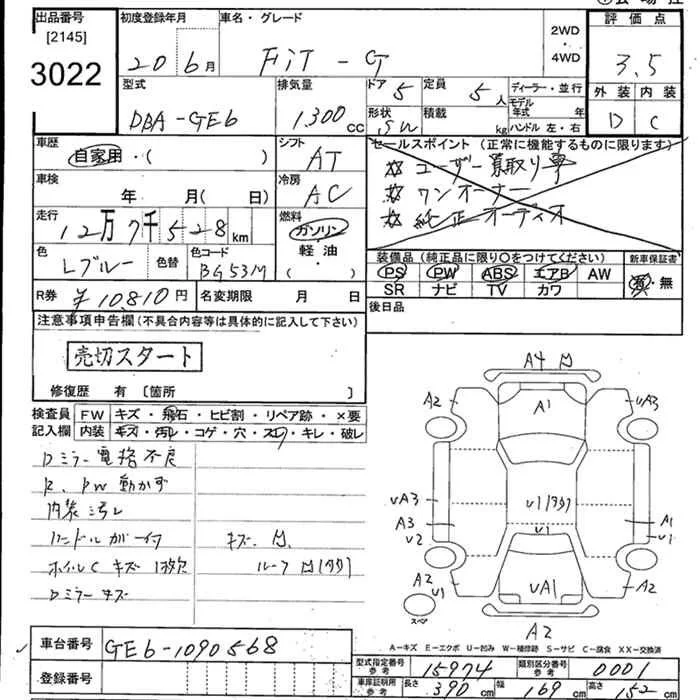 出品番号 [2145] 3022
初度登録年月 20 6月
車名・グレード FiT - G
2WD・4WD
評価点 3.5
外装 内装
D C
型式 DBA-GE6
排気量 1300 cc
ドア 5 定員 5人
形状 SW 積載 kg
ディーラー・並行
モデル年式 年
ハンドル 左・右
車歴 自家用・( )
シフト AT
車検 年 月( 日)
冷房 AC
走行 12万7千528km
燃料 ガソリン 軽・油 ( )
色 Lブルー 色替 色コード BG53M
R券 ¥10,810円 名変期限 月 日
セールスポイント (正常に機能するものに限ります)
☆ ユーザー買取り車
☆ ワンオーナー
☆ 純正オーディオ
装備品 (純正品に限り○をつけてください)
PS PW ABS エアB AW
SR ナビ TV カワ
新車保証書
・無
後日品
注意事項申告欄 (不具合内容等は具体的に記入して下さい)
売切スタート
修復歴 有 〔箇所 〕
検査員記入欄
FW キズ・飛石・ヒビ割・リペア跡・×要
内装 キズ・汚レ・コゲ・穴・スレ・キレ・破レ
Dミラー電格不良
PW動かず
内装汚レ
キズ
ホイルC キズ 1枚欠
ルーフ
Dミラーキズ
A4
A2 A1 A3
UA3
A3 U1 A1
U2 U1
A2 U1 UA1 A2
スペア
A2
A-キズ E-エクボ U-凹み W-補修跡 S-サビ C-腐食 XX-交換済
車台番号 GE6-1090568
登録番号
型式指定番号 参考 15974 類別区分番号 参考 0001
車庫証明用 参考 長さ 390 cm 幅 169 cm 高さ 152 cm